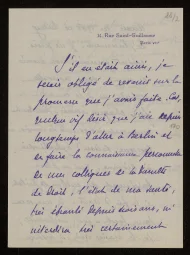 11, Rue Saint-Guillaume
S'il en était ainsi, je
serais obligé de revenir sur la
promesse que j'avais faite. Car,
quelque vif désir que j'aie depuis
longtemps d'aller à Berlin et
en faire la connaissance personnelle
de mes collègues de la Faculté
de Droit, l'état de ma santé,
très ébranlé depuis trois ans, m'
interdira très certainement